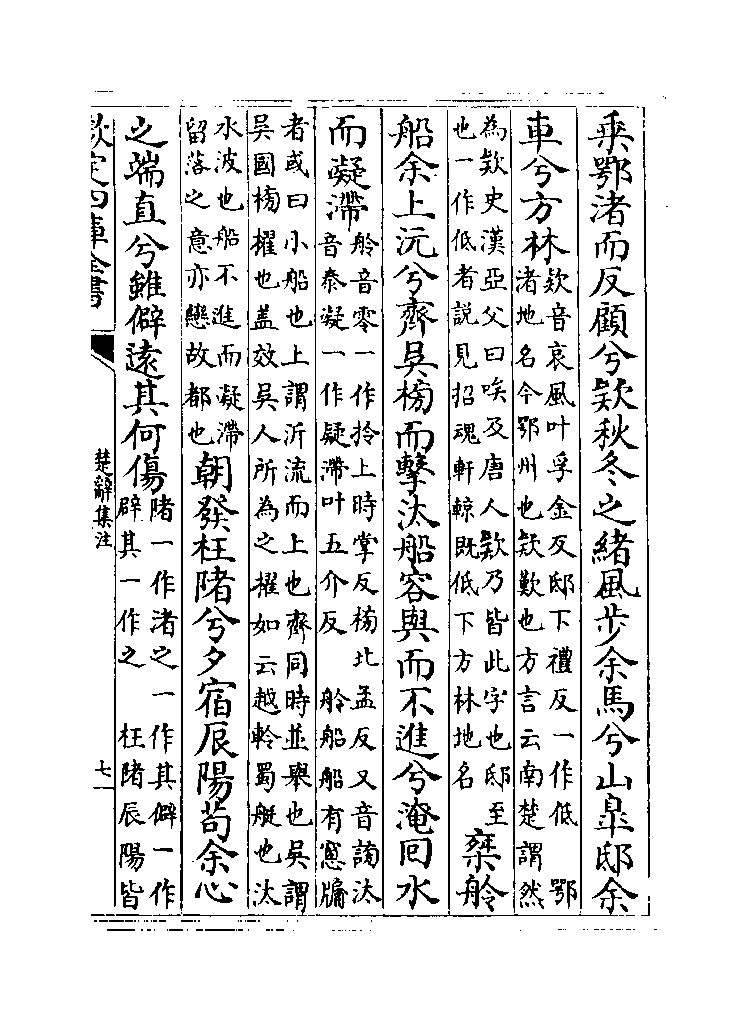 乘鄂渚而反顧兮欵秋冬之緒風步余馬兮山臯邸余
車兮方林
欵音哀風叶孚金反邸下禮反一作低　鄂
渚地名今鄂州也欵歎也方言云南楚謂然
為欵史漢亞父曰唉及唐人欵乃皆此字也邸至
也一作低者說見招魂軒輬既低下方林地名
椉舲
船余上沅兮齊吳榜而擊汰船容與而不進兮淹囘水
而凝滯
舲音零一作拎上時掌反榜北孟反又音謗汰
音泰凝一作疑滯叶五介反　舲船船有䆫牖
者或曰小船也上謂泝流而上也齊同時並舉也吳謂
吳國榜櫂也盖效吳人所為之櫂如云越舲蜀艇也汰
水波也船不進而凝滯
留落之意亦戀故都也
朝發枉陼兮夕宿辰陽苟余心
之端直兮雖僻遠其何傷
陼一作渚之一作其僻一作
辟其一作之　枉陼辰陽皆
欽定四庫全書
楚辭集注
七一